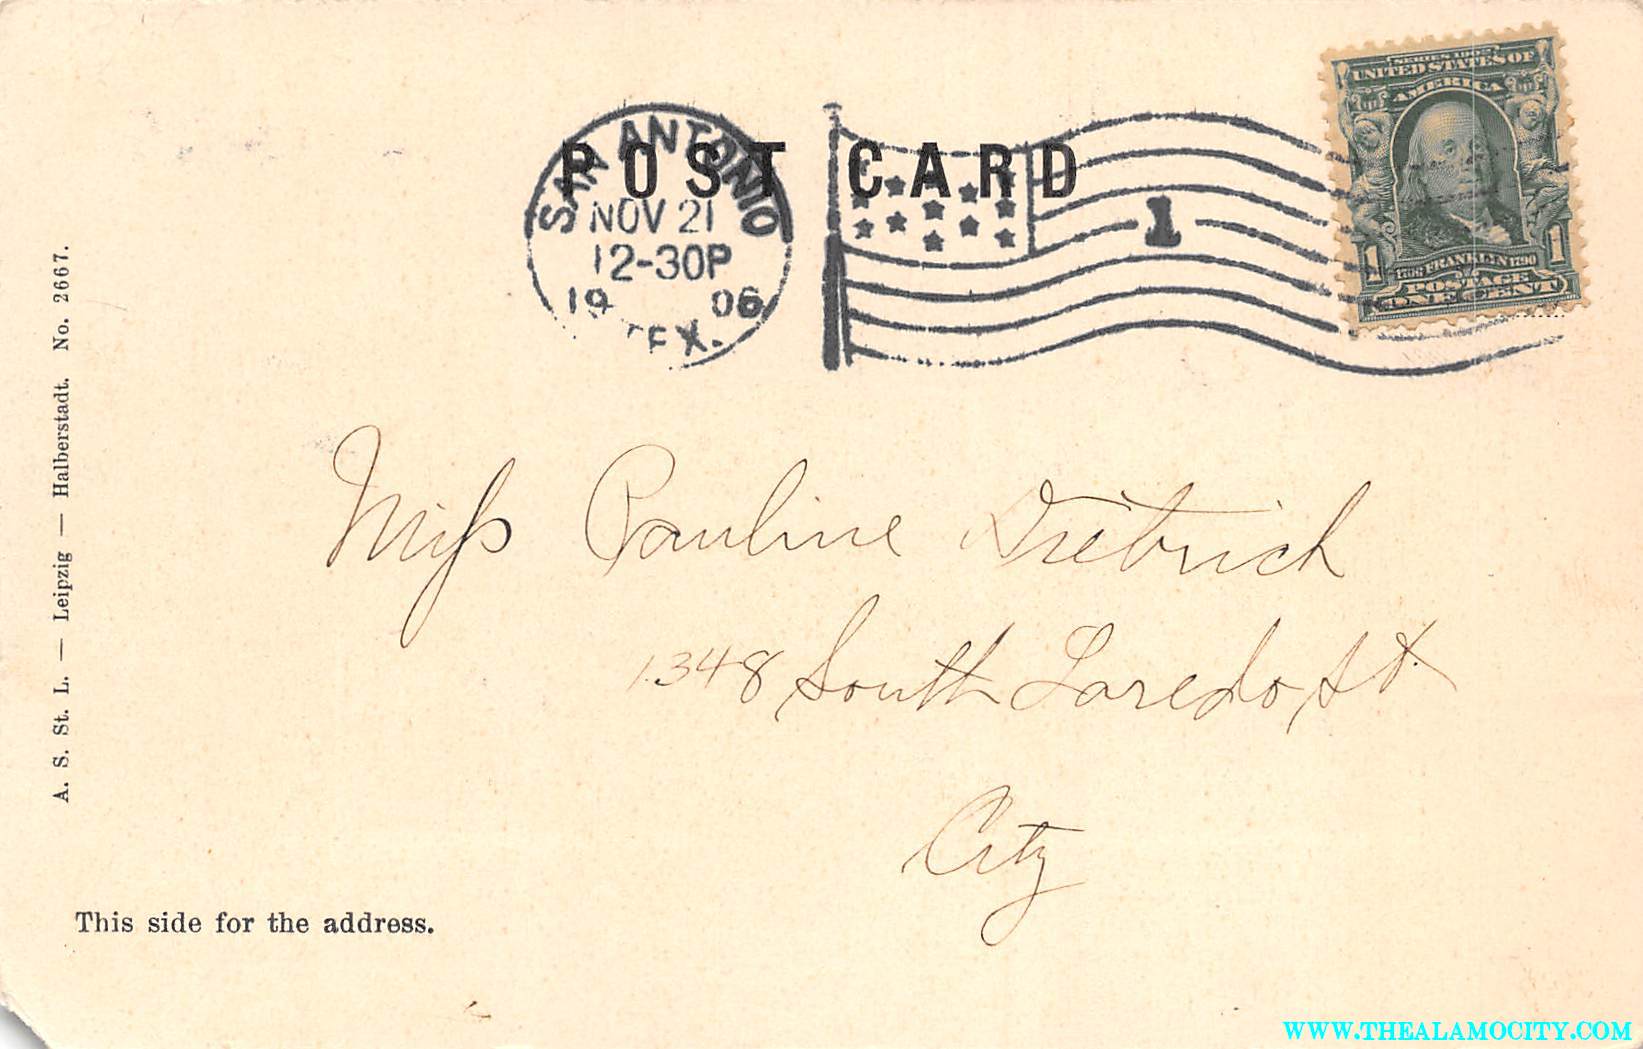 POST CARD
SAN ANTONIO
NOV 21
12-30P
19 06
TEX.
1
SERIES 1902
UNITED STATES OF
AMERICA
1 1
FRANKLIN 1790
POSTAGE
ONE CENT
Miss Pauline Dietrich
1348 South Laredo St.
City
A. S. St. L. — Leipzig — Halberstadt. No. 2667.
This side for the address.
WWW.THEALAMOCITY.COM